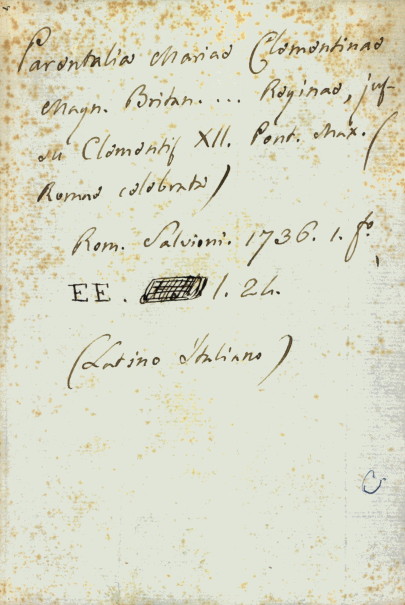 Parentalia Mariae Clementinae
Magn. Britan. ... Reginae, jus-
su Clementis XII. Pont. Max. (
Romae celebrata)
Rom. Salvioni. 1736. 1. fo.
EE. 1. 24.
(Latino Italiano)